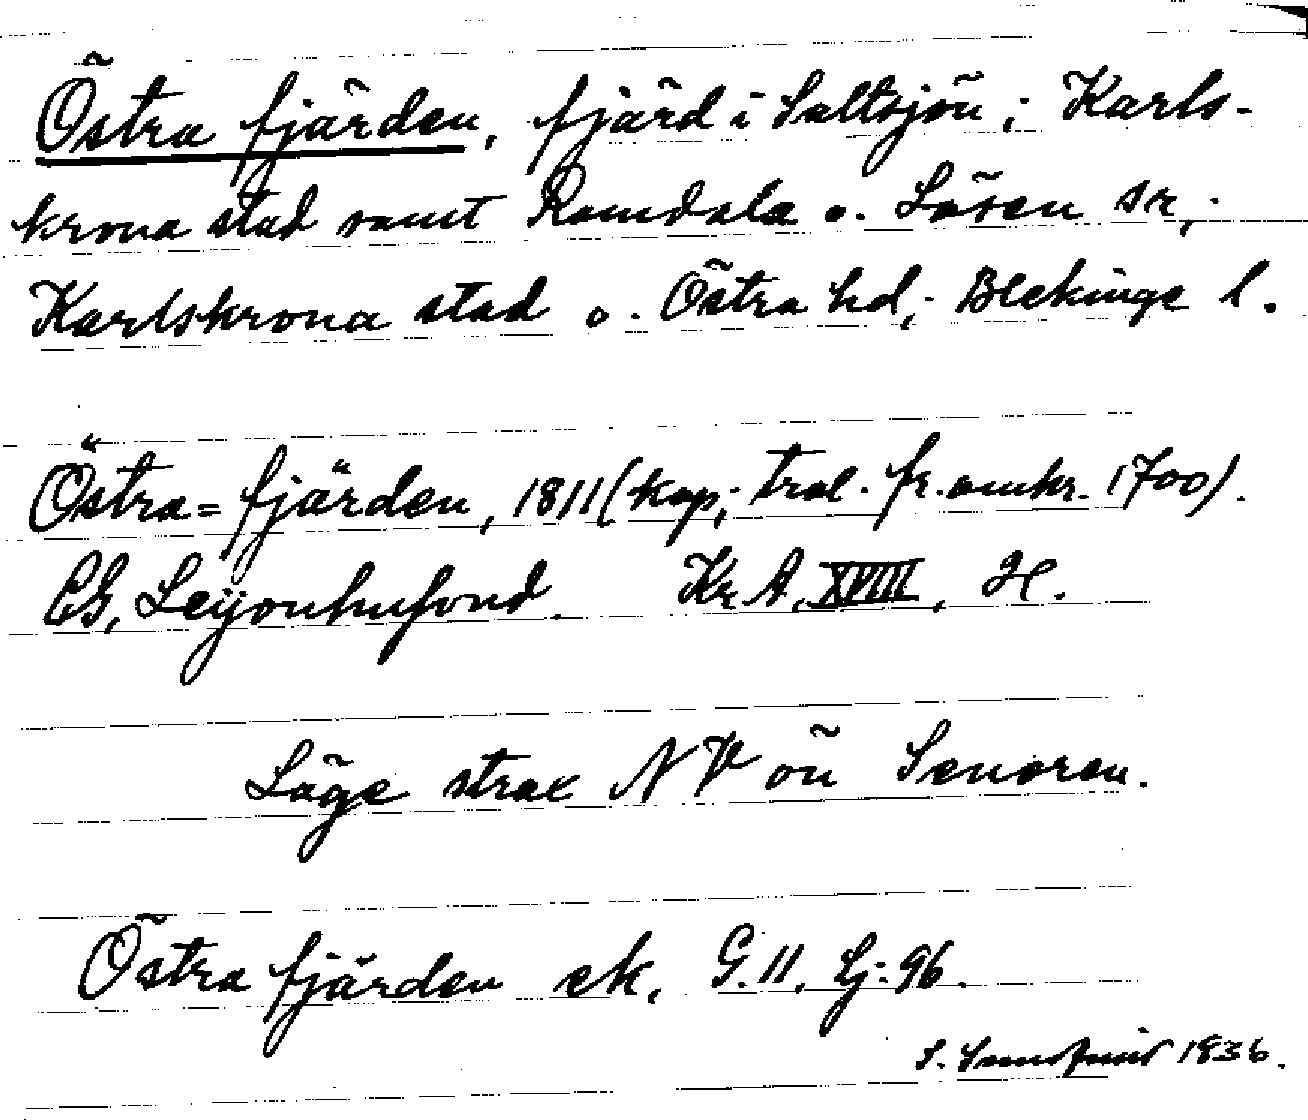 Östra fjärden, fjärd i Saltsjön; Karls-
krona stad samt Ramdala o. Lösen sr,;
Karlskrona stad o. Östra hd,; Blekinge l.
Östra=fjärden, 1811 (kop,; trol. fr. omkr. 1700).
CG, Leijonhufvud. Kr A, XVIII, H.
Läge strax NV ön Senoren.
Östra fjärden ek, G. 11. Lj: 96.
S. 1936.